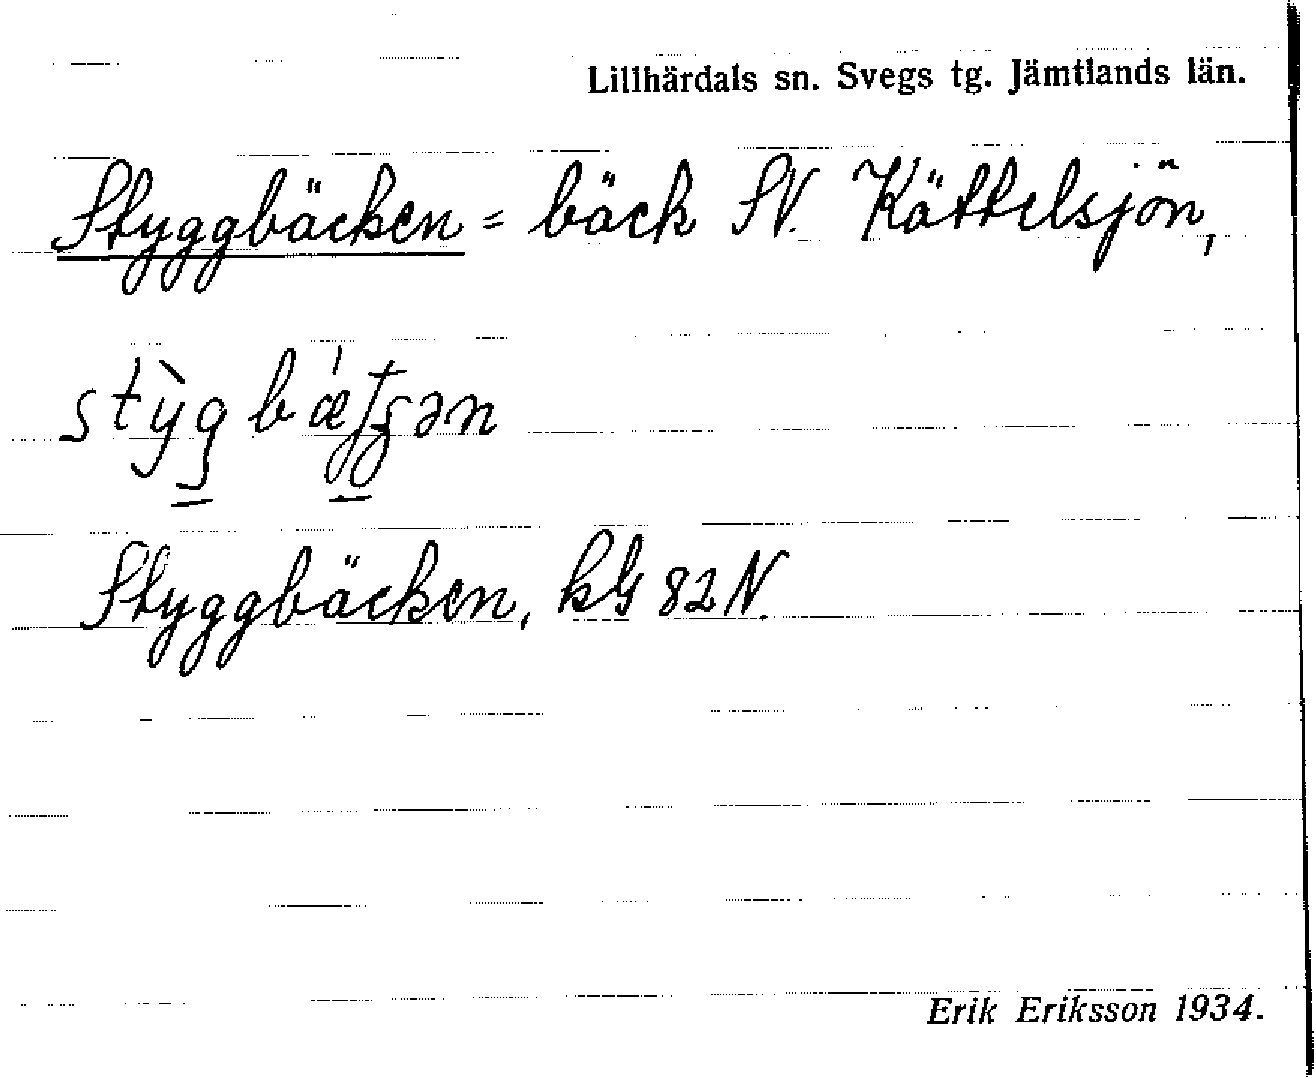 Lillhärdals sn. Svegs tg. Jämtlands län.
Styggbäcken = bäck SV. Kättelsjön,
Styggbäcken, kG 82 N.
Erik Eriksson 1934.